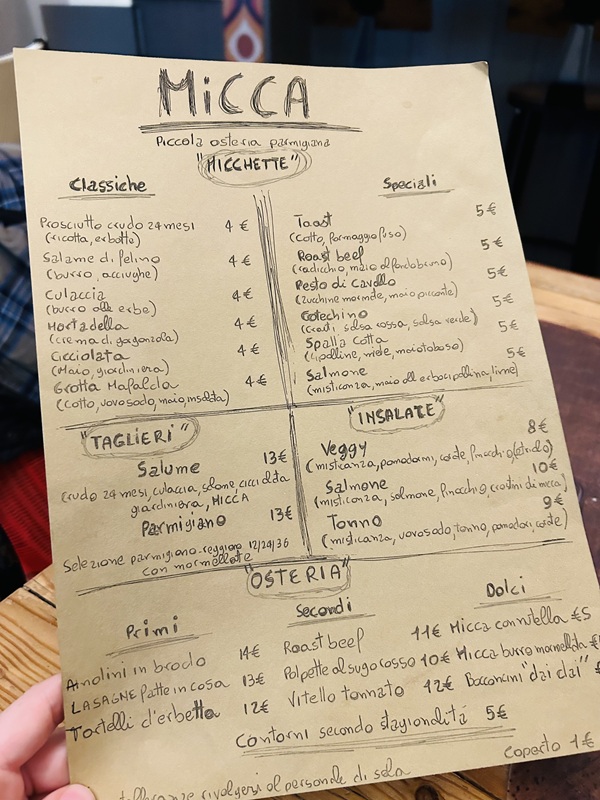 MiCCA
Piccola osteria parmigiana
"MICCHETTE"
Classiche
Prosciutto crudo 24 mesi 4 €
(ricotta, erbette)
Salame di felino 4 €
(burro, acciughe)
Culaccia 4€
(burro alle erbe)
Mortadella 4€
(crema di gorgonzola)
Cicciolata 4€
(Maio, giardiniera)
Grotta Mafalda 4€
(Cotto, uovo sodo, maio, insalata)
Speciali
Toast 5€
(cotto, formaggio fuso)
Roast beef 5€
(radicchio, maio al fondo bruno)
Pesto di cavallo 5€
(zucchine marinate, maio piccante)
Cotechino 5€
(crauti, salsa rossa, salsa verde)
Spalla Cotta 5€
(cipolline, miele, maiotobaso)
Salmone 5€
(misticanza, maio alle erbocipollina, lime)
"TAGLIERI"
Salume 13€
(crudo 24 mesi, culaccia, salame, cicciolata
giardiniera, MICCA
Parmigiano 13€
Selezione parmigiano-reggiano 12/24/36
con marmellate
"INSALATE"
Veggy 8€
(misticanza, pomodorini, carote, finocchio,
Salmone 10€
(misticanza, salmone, finocchio, crostini di micca)
Tonno 9€
(misticanza, uovo sodo, tonno, pomodori, carote)
"OSTERIA"
Primi
Anolini in brodo 14€
LASAGNE fatte in casa 13€
Tortelli d'erbetta 12€
Secondi
Roast beef 11€
Polpette al sugo rosso 10€
Vitello tonnato 12€
Dolci
Micca con nutella €5
Micca burro marmellata €
Bocconcini "dai dai" €
Contorni secondo stagionalità 5€
Coperto 1€
rivolgersi al personale di sala